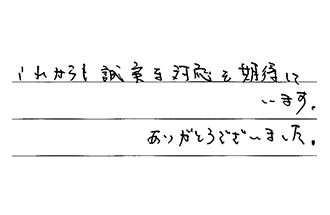 これからも誠実な対応を期待して
います。
ありがとうございました。